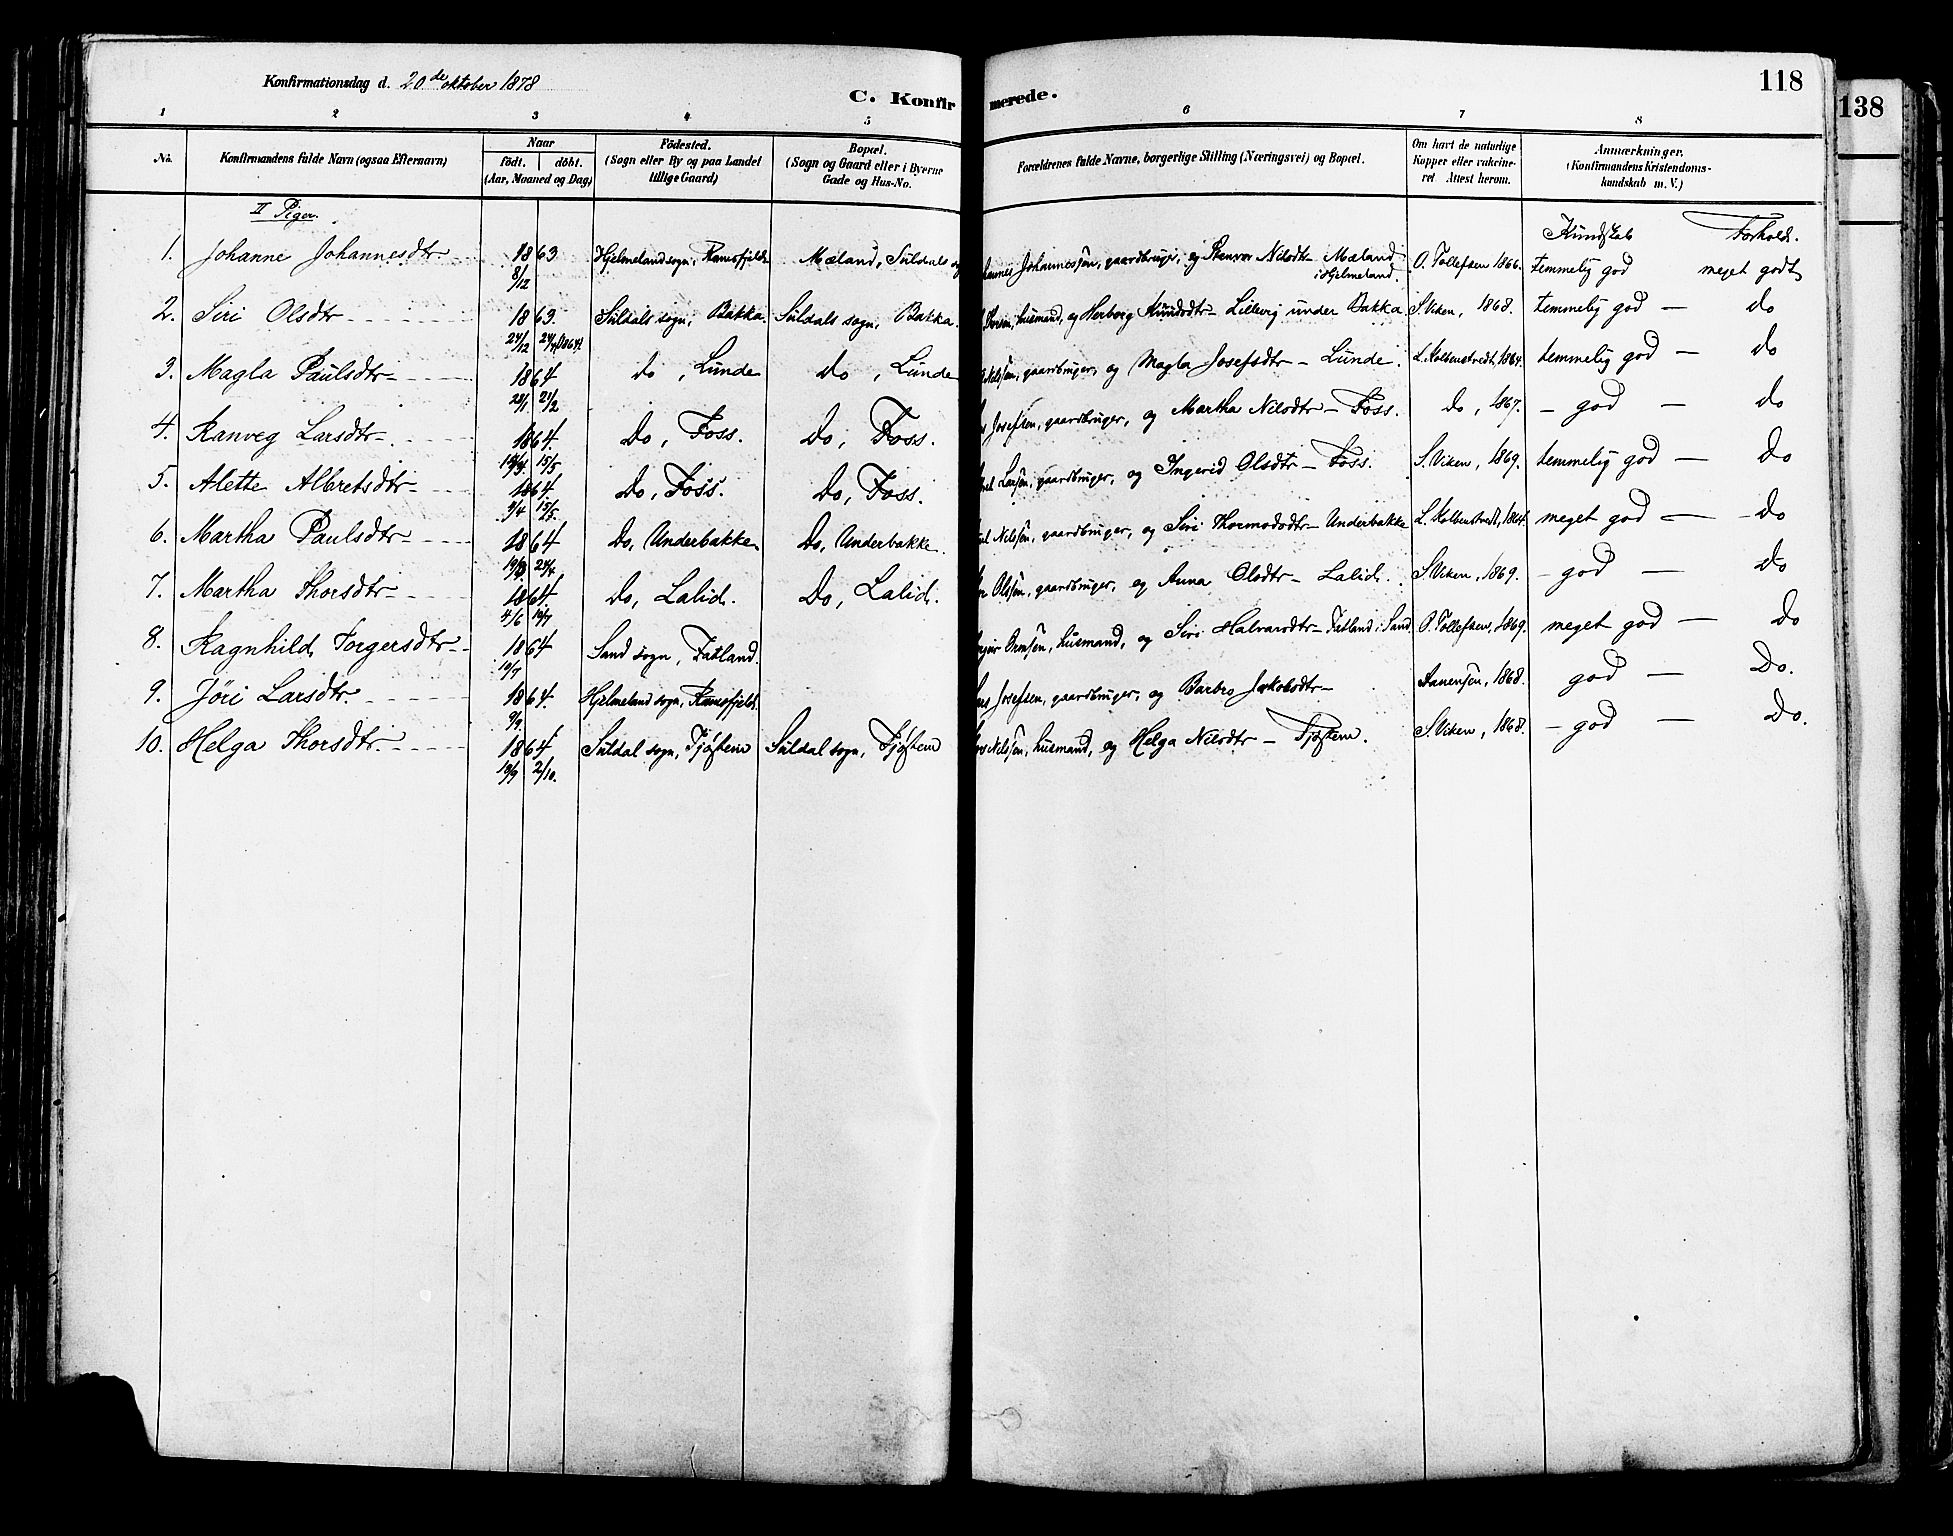 Konfirmationsdag d. 20de oktober 1878
C. Konfirmerede.
118
138
1 2 3 4 5 6 7 8
No. Konfirmandens fulde Navn (ogsaa Efternavn) Naar födt. döbt. (Aar, Maaned og Dag) Födested. (Sogn eller By og paa Landet tillige Gaard) Bopæl. (Sogn og Gaard eller i Byerne Gade og Hus-No. Forældrenes fulde Navne, borgerlige Stilling (Næringsvei) og Bopæl. Om havt de naturlige Kopper eller vakcineret Attest herom. Anmærkninger. (Konfirmandens Kristendomskundskab m. V.)
II Piger. Kundskab Forhold.
1. Johanne Johannesdtr 1863 8/12 Hjelmeland sogn, Ramsfjeld Mæland, Suldals Johannessen, gaardbruger, og Stenvor Nilsdtr Mæland i Hjelmeland. O. Tollefsen 1866. temmelig god meget godt
2. Siri Olsdtr 1863. 24/12 Suldals sogn, Bakka. Suldals sogn, Bakka. husmand, og Herborg Amundsdtr Lillevig under Bakka S. Viken, 1868. temmelig god — do
3. Magla Paulsdtr 1864 28/1 21/2 do, Lunde do, Lunde gaardbruger, og Magla Josefsdtr Lunde. L. Kolbenstvedt, 1864. temmelig god — do
4. Ranveg Larsdtr 1864. 15/5 Do, Foss. Do, Foss. Josefsen, gaardbruger, og Martha Nilsdtr Foss. do, 1867. god — do
5. Alette Albretsdtr 1864. 9/4 15/5 Do, Foss. Do, Foss. Larsen, gaardbruger, og Ingerid Olsdtr Foss. S. Viken, 1869. temmelig god — do
6. Martha Paulsdtr 1864 24/4 Do, Underbakke Do, Underbakke. Nilsen, gaardbruger, og Siri Thormodsdtr Underbakke L. Kolbenstvedt, 1864. meget god — do
7. Martha Thorsdtr 1864 4/6 Do, Lalid. Do, Lalid. Olsen, gaardbruger, og Anna Olsdtr Lalid. S. Viken, 1869. god — do
8. Ragnhild Torgersdtr 1864 10/7 Sand sogn, Fatland. Ormsen, husmand, og Siri Halvarsdtr Fatland i Sand O. Tollefsen, 1869. meget god — do
9. Jöri Larsdtr. 1864. 9/9 Hjelmeland sogn, Ramsfjeld. Josefsen, gaardbruger, og Barbro Jakobsdtr Aanensen, 1868. god — Do.
10. Helga Thorsdtr. 1864 18/9 2/10. Suldal sogn, Tjøstem Suldal sogn, Tjøstem Nilsen, husmand, og Helga Nilsdtr Tjøstem. S. Viken, 1868. god — Do.